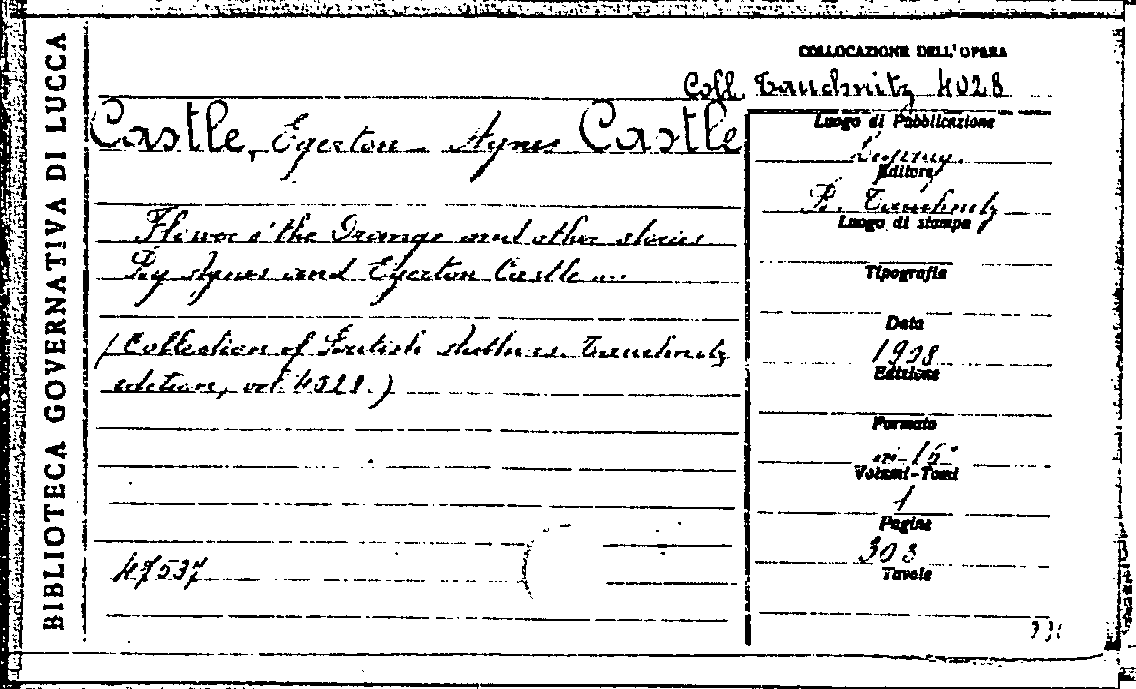 BIBLIOTECA GOVERNATIVA DI LUCCA
COLLOCAZIONE DELL'OPERA
Coll. Tauchnitz 4028
Castle, Egerton Agnes Castle
Flower o' the Orange and other stories
By Agnes and Egerton Castle ...
(Collection of British Authors. Tauchnitz
edition, vol. 4028.)
47537
Luogo di Pubblicazione
Editore
B. Tauchnitz
Luogo di stampa
Tipografia
Data
1908
Edizione
Formato
in-16°
Volumi-Tomi
1
Pagine
303
Tavole